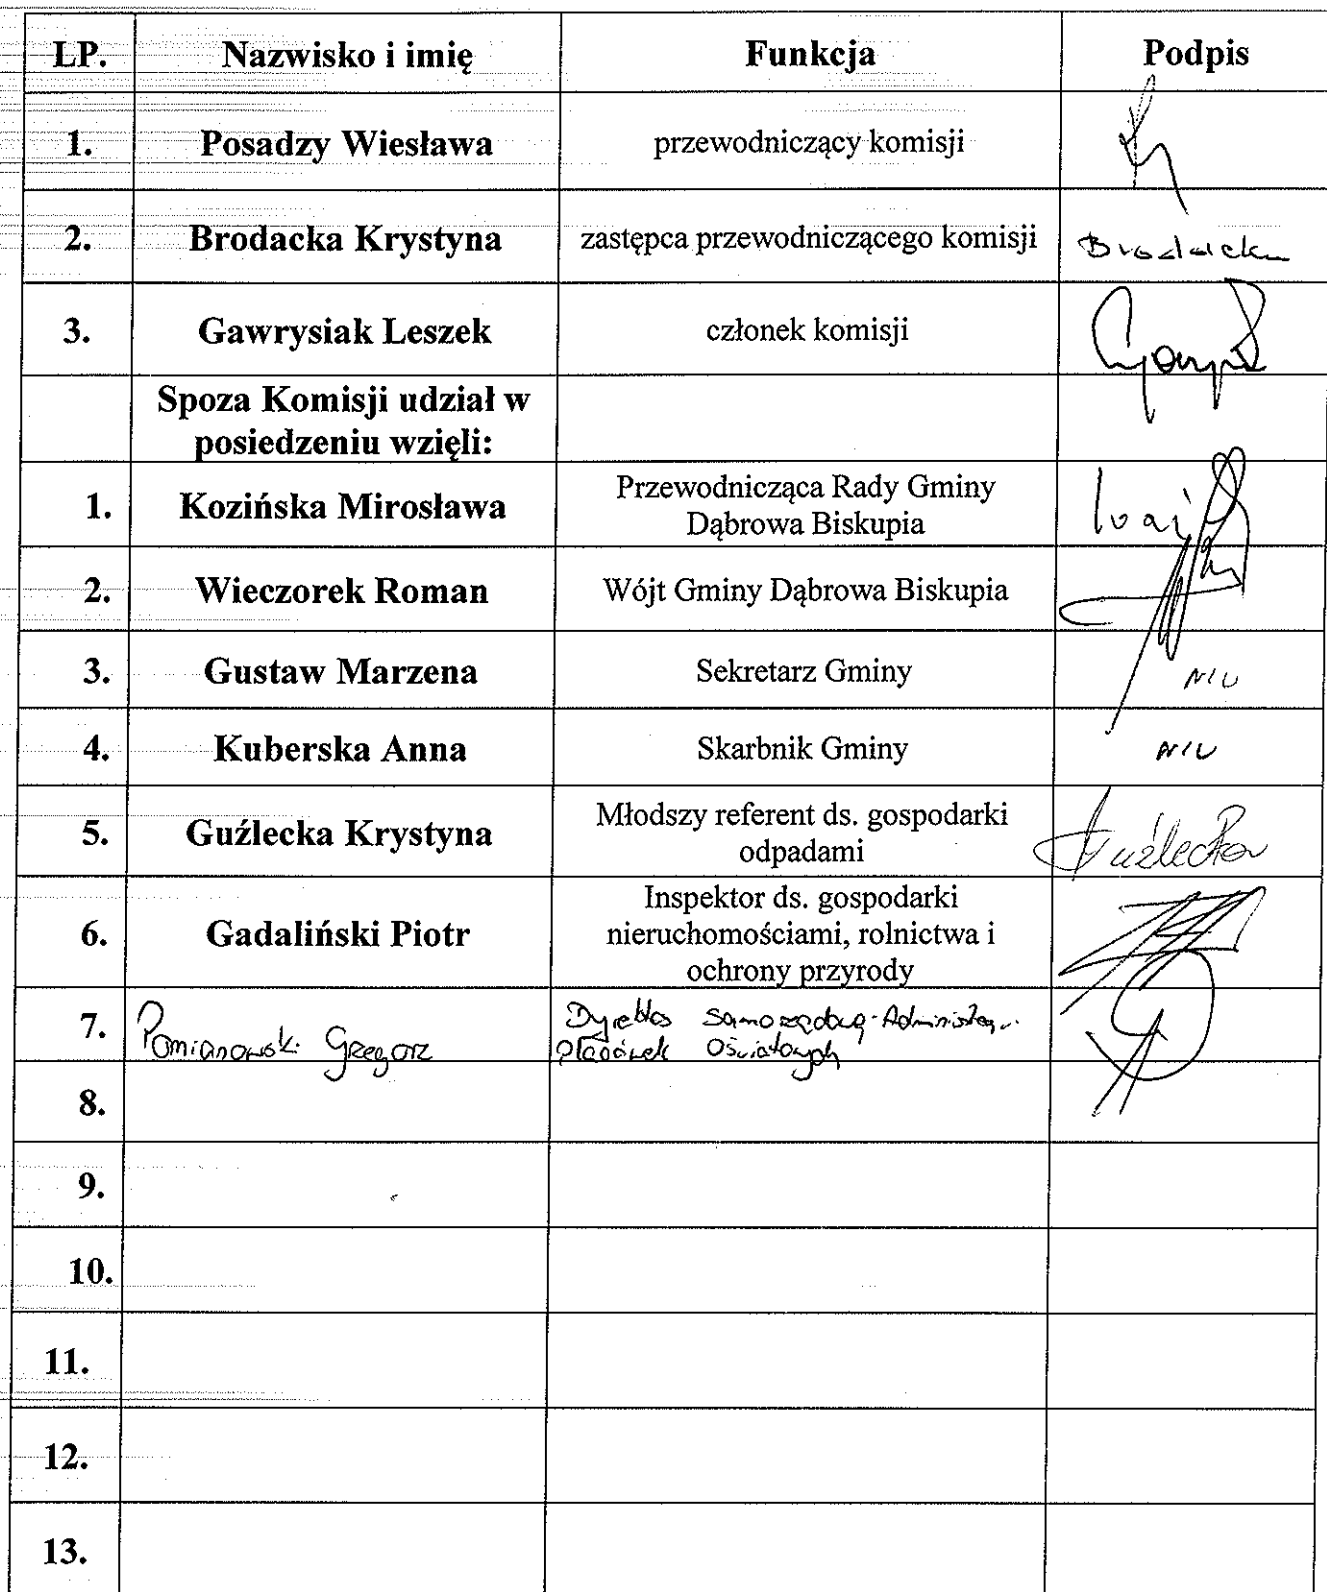 LP. Nazwisko i imię Funkcja Podpis
1. Posadzy Wiesława przewodniczący komisji
2. Brodacka Krystyna zastępca przewodniczącego komisji Brodacka
3. Gawrysiak Leszek członek komisji
Spoza Komisji udział w
posiedzeniu wzięli:
1. Kozińska Mirosława Przewodnicząca Rady Gminy
Dąbrowa Biskupia
2. Wieczorek Roman Wójt Gminy Dąbrowa Biskupia
3. Gustaw Marzena Sekretarz Gminy
4. Kuberska Anna Skarbnik Gminy
5. Guźlecka Krystyna Młodszy referent ds. gospodarki
odpadami Guźlecka
6. Gadaliński Piotr Inspektor ds. gospodarki
nieruchomościami, rolnictwa i
ochrony przyrody
7. Pomianowski Grzegorz Dyrektor
Placówek Oświatowych
8.
9.
10.
11.
12.
13.